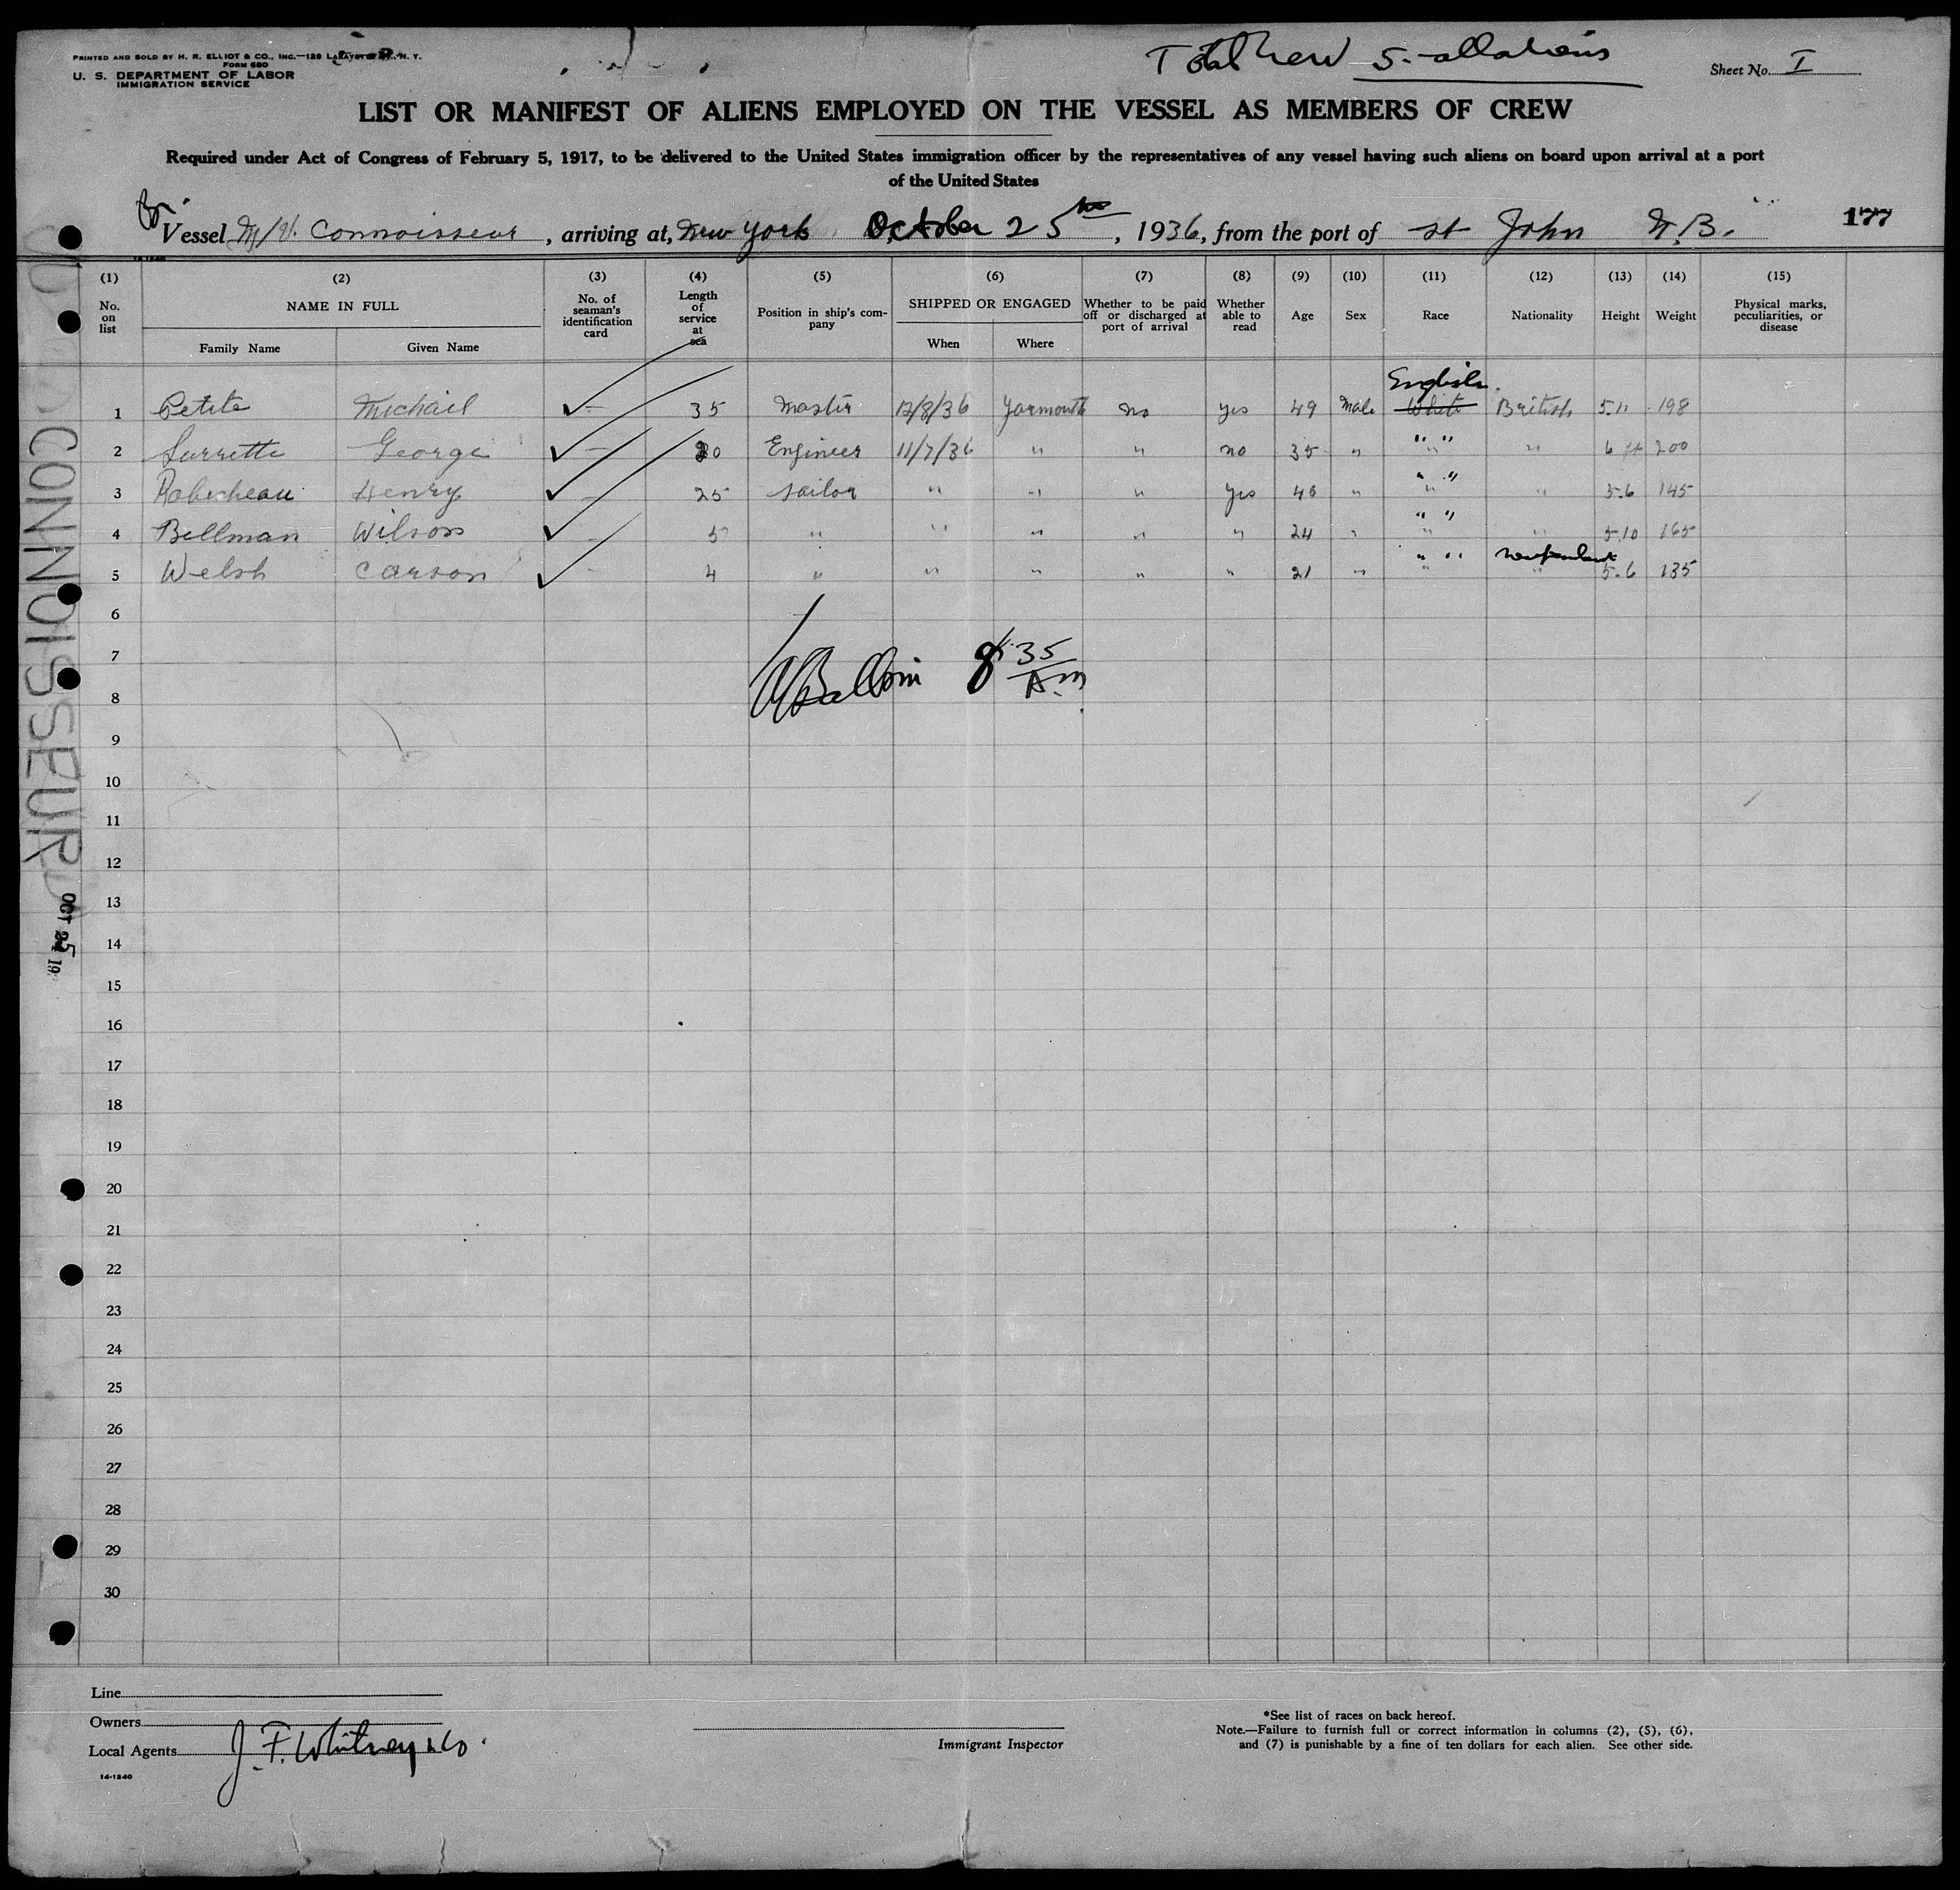 PRINTED AND SOLD BY H. R. ELLIOT & CO., INC.—129 LAFAYETTE ST., N. Y.
FORM 680
U. S. DEPARTMENT OF LABOR
IMMIGRATION SERVICE
Total Crew 5 - all aliens
Sheet No. I
LIST OR MANIFEST OF ALIENS EMPLOYED ON THE VESSEL AS MEMBERS OF CREW
Required under Act of Congress of February 5, 1917, to be delivered to the United States immigration officer by the representatives of any vessel having such aliens on board upon arrival at a port
of the United States
Br. Vessel M/V. Connoisseur, arriving at, New York October 25th, 1936, from the port of St John N.B.
177
14-1240
(1) (2) (3) (4) (5) (6) (7) (8) (9) (10) (11) (12) (13) (14) (15)
No. on list NAME IN FULL Family Name Given Name No. of seaman's identification card Length of service at sea Position in ship's company SHIPPED OR ENGAGED When Where Whether to be paid off or discharged at port of arrival Whether able to read Age Sex Race Nationality Height Weight Physical marks, peculiarities, or disease
English
1 Petite Michail — 35 Master 12/8/36 Yarmouth no yes 49 Male White British 5.11 198
2 Surrette George — 20 Engineer 11/7/36 " " no 35 " " " " 6 ft 200
3 Robicheau Henry — 25 Sailor " " " yes 46 " " " " 5.6 145
4 Bellman Wilson — 5 " " " " " 24 " " " " 5.10 165
Newfoundland
5 Welsh Carson — 4 " " " " " 21 " " " " 5.6 135
6
7
8 35 A.m
8
9
10
11
12
13
14
15
16
17
18
19
20
21
22
23
24
25
26
27
28
29
30
CONNOISSEUR
OCT 25 19
Line
Owners
Local Agents J. F. Whitney & Co.
14-1240
Immigrant Inspector
*See list of races on back hereof.
Note.—Failure to furnish full or correct information in columns (2), (5), (6),
and (7) is punishable by a fine of ten dollars for each alien. See other side.